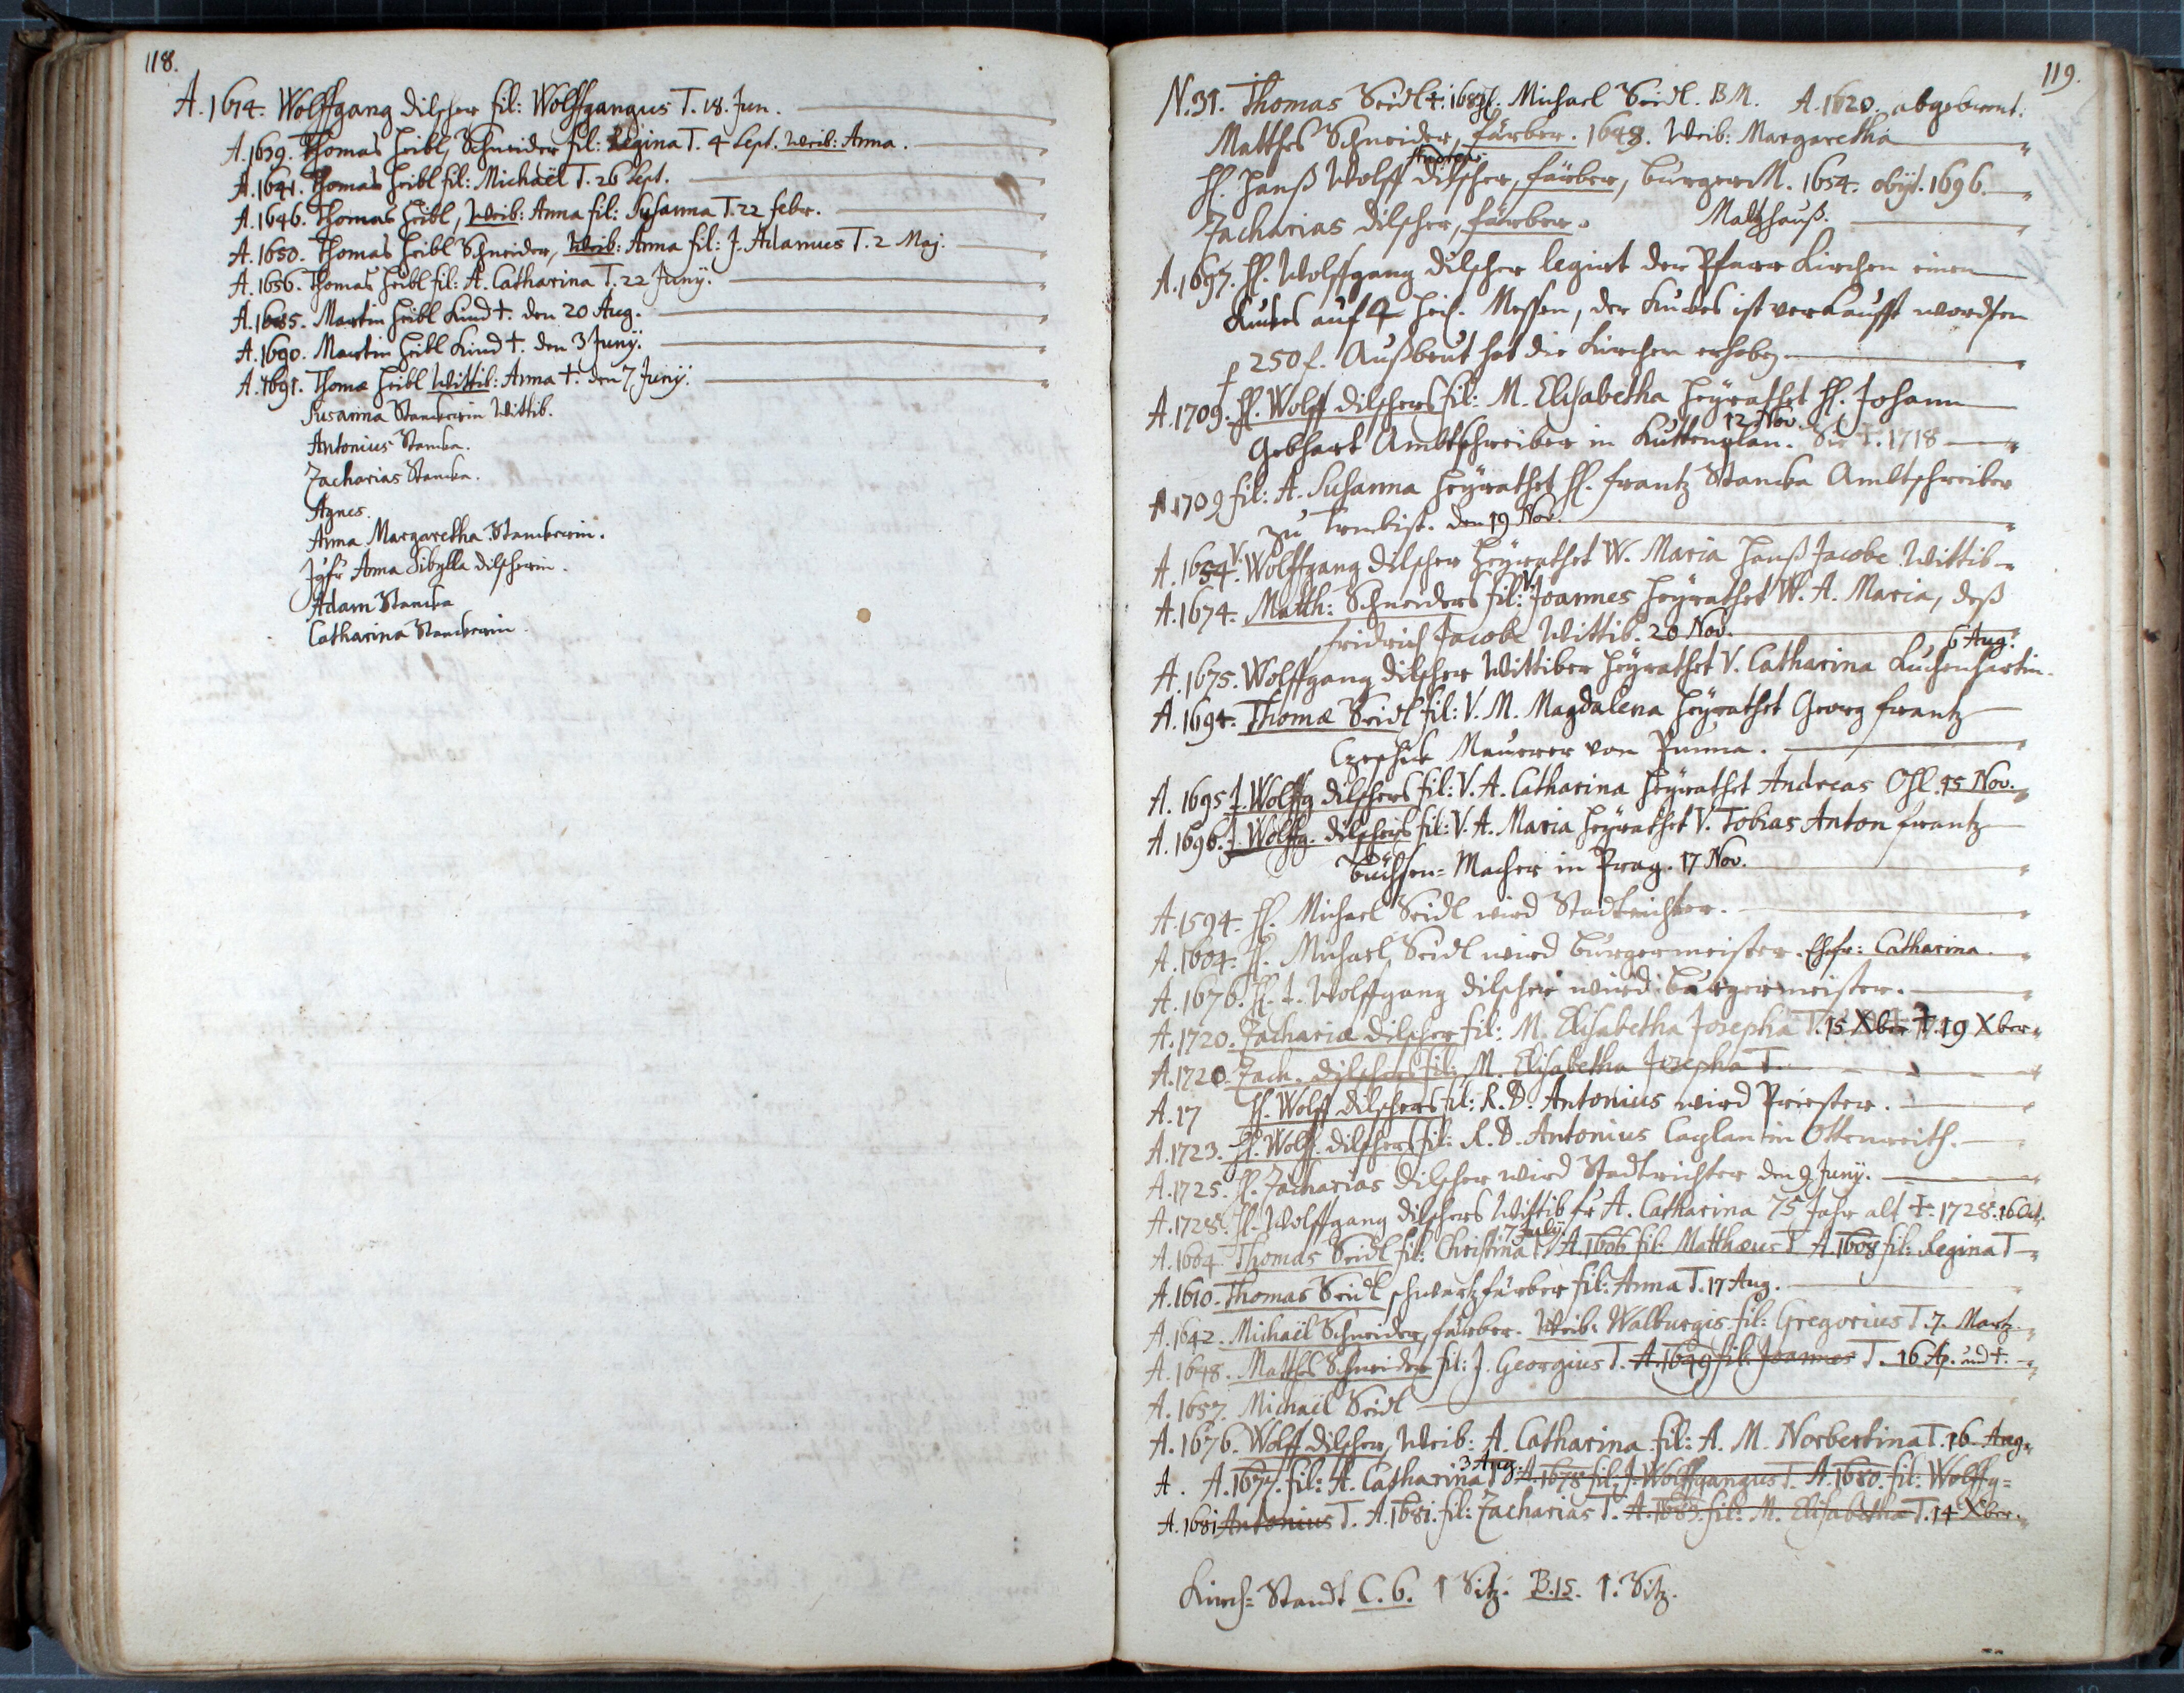 118.
A. 1614. Wolffgang Dilscher fil: Wolffgangus T. 18. Jun.
A. 1639. Thomas Heibl, Schneider fil: Regina T. 4 Sept. Weib: Anna.
A. 1641. Thomas Heibl fil: Michaël T. 26 Sept.
A. 1646. Thomas Heibl, Weib: Anna fil: Susanna T. 22 febr.
A. 1650. Thomas Heibl Schneider, Weib: Anna fil: J. Adamus T. 2 Maj.
A. 1656. Thomas Heibl fil: A. Catharina T. 22 Junÿ.
A. 1685. Martin Heibl Kind †. den 20 Aug.
A. 1690. Martin Heibl Kind †. den 3 Junÿ.
A. 1691. Thomæ Heibl Wittib: Anna †. den 7 Junÿ.
Susanna Wittib.
Antonius Stanka.
Zacharias Stanka.
Agnes.
Anna Margaretha
Jgfr Anna Sibylla Dilscherin.
Adam Stanka
Catharina
119.
N. 31. Thomas Seidl †. Michael Seidl. BM. A. 1620. abgebrent.
Matthes Schneider, färber. 1648. Weib: Margaretha
H. Hanß Wolff Andreas Dilscher, färber, burgerM. 1654. obijt. 1696.
Zacharias Dilscher, färber. Maltzhauß.
A. 1697. H. Wolffgang Dilscher legirt der Pfarr Kirchen einen
auf 4 heil. Messen, der ist verkaufft wordten
p 250 f. hat die Kirchen erhebt.
A. 1709. H. Wolff Dilschers fil: M. Elisabetha heÿrathet H. Johann
Gebhart Ambtschreiber in Kuttenplan. 12 Nov. Sie †. 1718
A 1709 fil: A. Susanna heÿrathet H. Frantz Stanka Ambtschreiber
zu den 19 Nov.
A. 1654. V. Wolffgang Dilscher heÿrathet W. Maria Hanß Jacobe Wittib
A. 1674. Matth: Schneiders fil: V. Joannes heÿrathet W. A. Maria, deß
fridrich Jacobe Wittib. 20 Nov.
A. 1675. Wolffgang Dilscher Wittiber heÿrathet V. Catharina 6 Aug.
A. 1694. Thomæ Seidl fil: V. M. Magdalena heÿrathet Georg frantz
Maurer von
A. 1695 J. Wolffg Dilschers fil: V. A. Catharina heÿrathet Andreas Ohl. 15 Nov.
A. 1696. J. Wolffg. Dilschers fil: V. A. Maria heÿrathet V. Tobias Anton frantz
Büchsen=Macher in Prag. 17 Nov.
A. 1594. H. Michael Seidl wird Stadtrichter.
A. 1604. H. Michael Seidl wird burgermeister. Ehefr: Catharina.
A. 1676. H. J. Wolffgang Dilscher wird burgermeister.
A. 1720. Zachariæ Dilscher fil: M. Elisabetha Josepha T. 15 Xber †. 19 Xber
A. 1720. Zach. Dilschers fil: M. Elisabetha Josepha T.
A. 17 H. Wolff Dilschers fil: R. D. Antonius wird Priester.
A. 1723. H. Wolff Dilschers fil: R. D. Antonius Caplan in Ottenreith.
A. 1725. H. Zacharias Dilscher wird Stadtrichter den 9 Junÿ.
A. 1728. H. Wolffgang Dilschers Wittib fr A. Catharina 75 Jahr alt †. 1728. 16 Oct.
A. 1604 Thomas Seidl fil: Christina T. 7 Julÿ. A. 1606 fil: Matthæus T. A. 1608 fil: Regina T
A. 1610. Thomas Seidl schwartzfärber fil: Anna T. 17 Aug.
A. 1642. Michaël Schneider, färber. Weib: Walburgis fil: Gregorius T. 7. Martz.
A. 1648. Matthes Schneider fil: J. Georgius T. A. 1649 fil: Joannes T. 16 Ap. und †.
A. 1657. Michaël Seidl
A. 1676. Wolff Dilscher, Weib: A. Catharina fil: A. M. Norbertina T. 16 Aug.
A. A. 1677. fil: A. Catharina T. 3 Aug. A. 1678 fil: J. Wolffgangus T. A. 1680. fil: Wolffg=
A. 1681 Antonius T. A. 1681. fil: Zacharias T. A. 1683. fil: M. Elisabetha T. 14 Xber.
Kirch=Standt C. 6. 1 Sitz. B. 15. 1. Sitz.